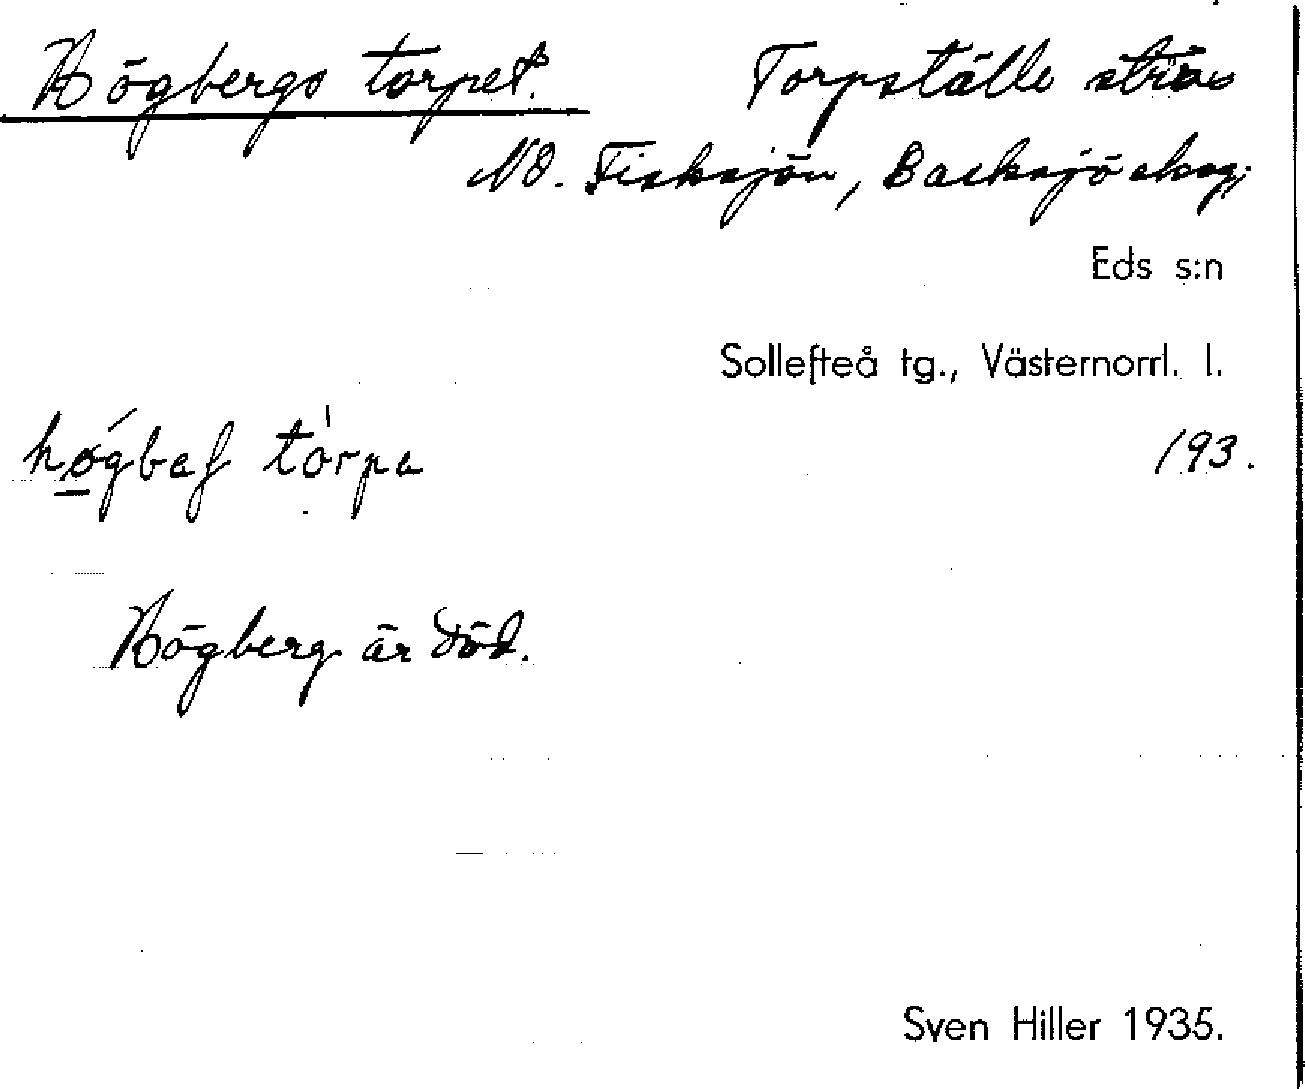 Högbergs torpet. Torpställe strax
NO. Fisksjön, Backsjö skog;
Eds s:n
Sollefteå tg., Västernorrl. l.
193.
Högberg är död.
Sven Hiller 1935.